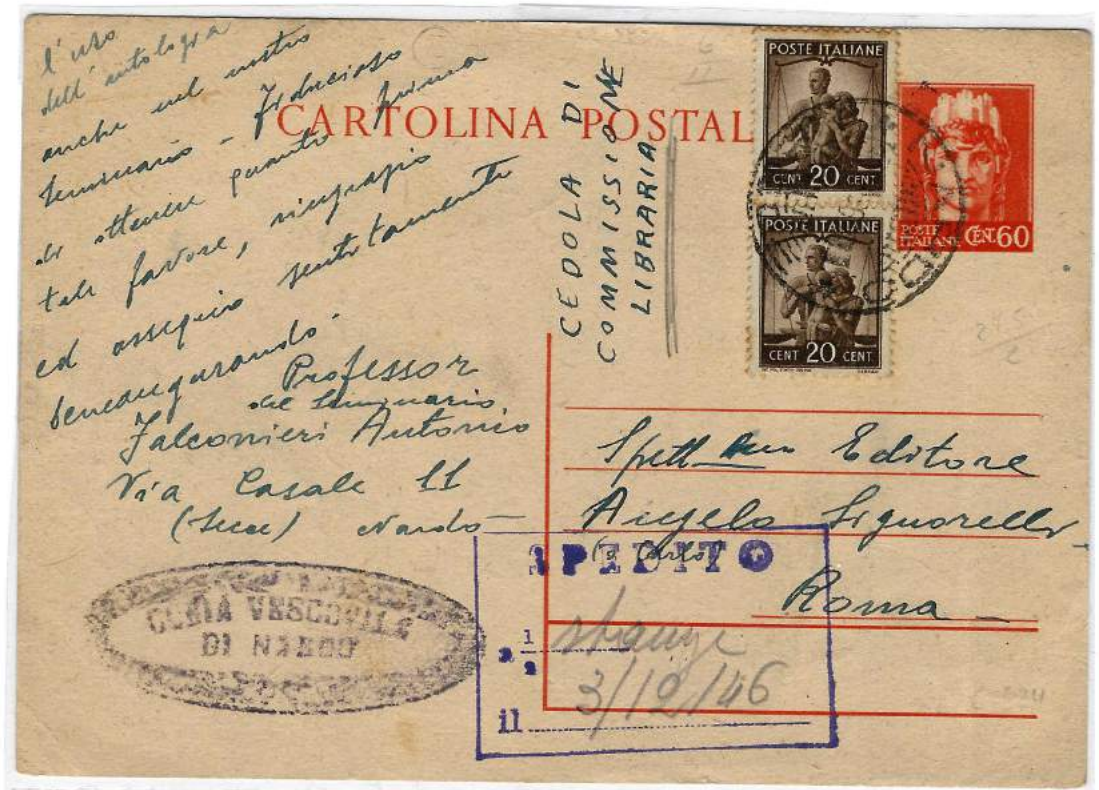 l'uso
dell'antologia
anche nel nostro
Seminario - Fiducioso
di ottenere quanto prima
tale favore, ringrazio
ed ossequio sentitamente
beneaugurando.
Professor
del Seminario
Falconieri Antonio
Via Casale 11
(Lecce) Nardò
CARTOLINA POSTAL
CEDOLA DI
COMMISSIONE
LIBRARIA
POSTE ITALIANE
CENT 20 CENT.
POSTE ITALIANE
CENT 20 CENT.
POSTE
ITALIANE CEN. 60
Spett. Editore
Angelo Signorelli
Roma
CURIA VESCOVILE
DI NARDÒ
SPEDITO
a 1/2 stampe
3/12/46
il